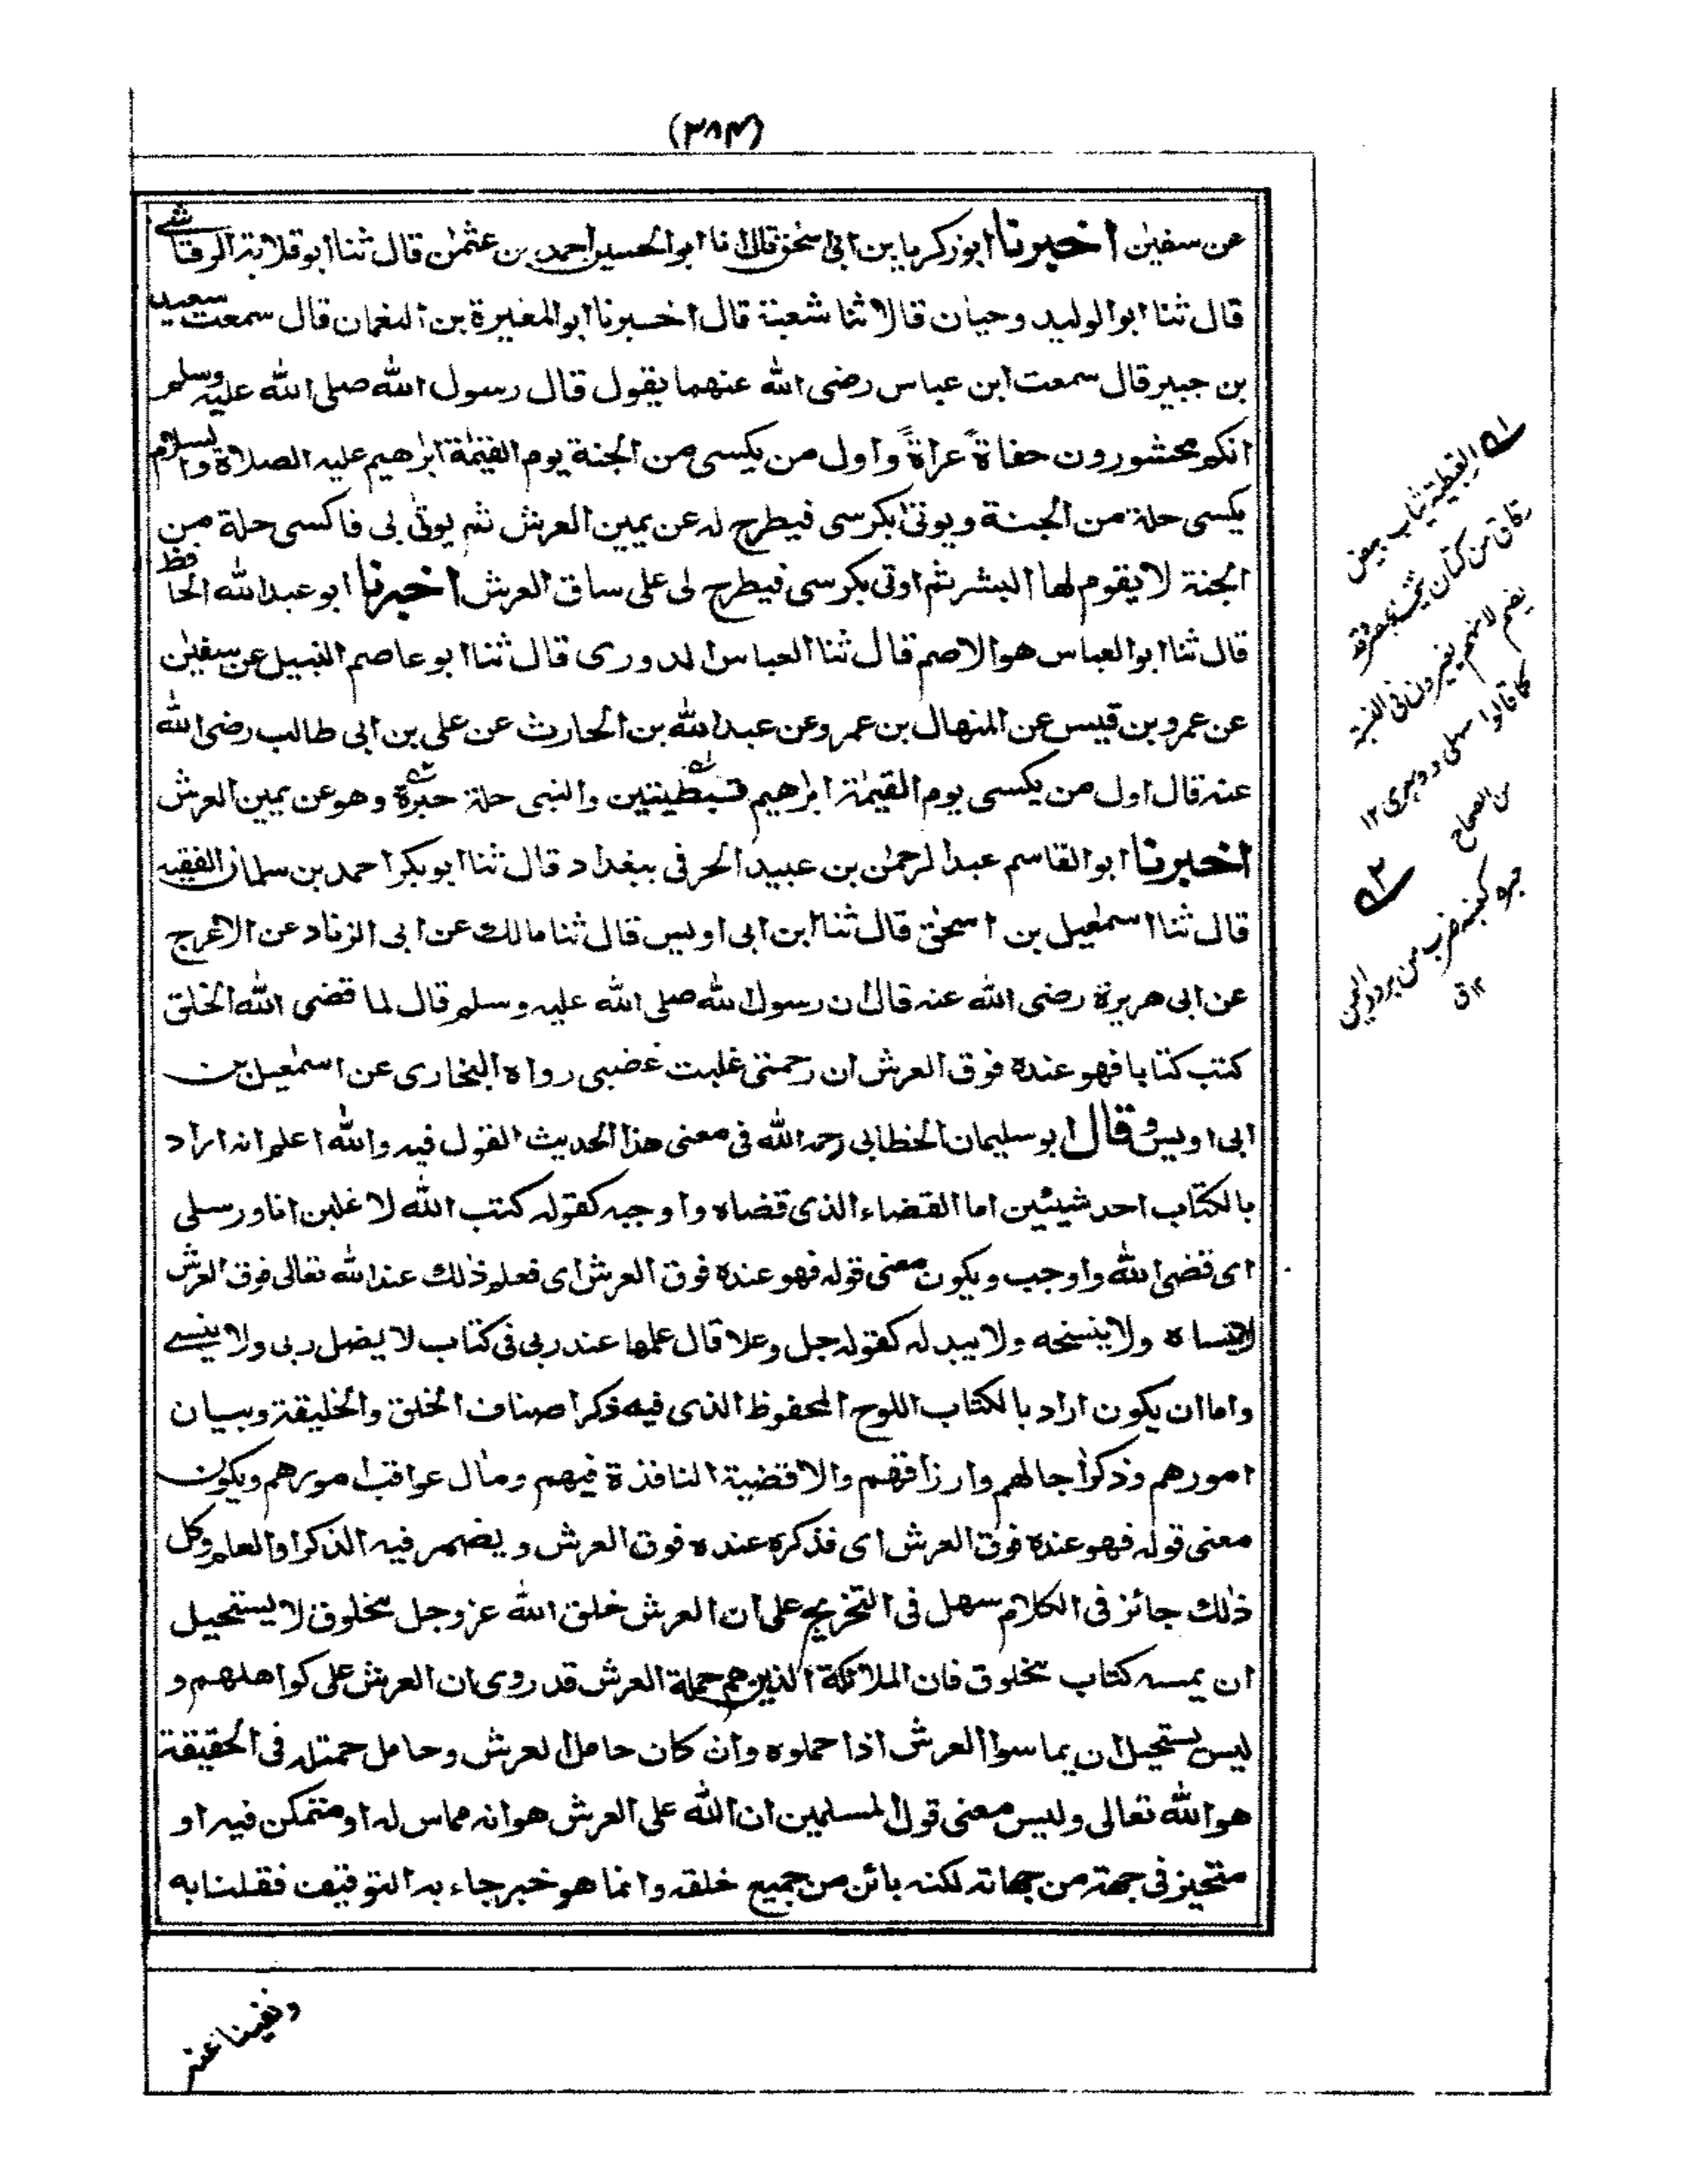 (٣٨٤)
عن سفيٰن اخبرنا ابوزكريا بن ابى اسحٰق قال انا ابو الحسين احمد بن عثمٰن قال ثنا ابو قلابة الرقاشى
قال ثنا ابو الوليد وحيان قالا ثنا شعبة قال اخبرنا ابو المغيرة بن النعمان قال سمعت سعيد
بن جبير قال سمعت ابن عباس رضى الله عنهما يقول قال رسول الله صلى الله عليه وسلم
انكم محشورون حفاة عراةً واول من يكسى من الجنة يوم القيٰمة ابرٰهيم عليه الصلاة والسلام
يكسى حلة من الجنة ويوتىٰ بكرسى فيطرح له عن يمين العرش ثم يوتىٰ بى فاكسى حلة من
الجنة لا يقوم لها البشر ثم اوتى بكرسى فيطرح لى على ساق العرش اخبرنا ابو عبد الله الحافظ
قال ثنا ابو العباس هو الاصم قال ثنا العباس الدورى قال ثنا ابو عاصم النبيل عن سفيٰن
عن عمرو بن قيس عن المنهال بن عمرو عن عبد الله بن الحارث عن على بن ابى طالب رضى الله
عنه قال اول من يكسى يوم القيٰمة ابرٰهيم قبطيتين والنبى حلة حبرة وهو عن يمين العرش
اخبرنا ابو القاسم عبد الرحمٰن بن عبيد الحرفى ببغداد قال ثنا ابو بكر احمد بن سلمان الفقيه
قال ثنا اسمٰعيل بن اسحٰق قال ثنا ابن ابى اويس قال ثنا مالك عن ابى الزناد عن الاعرج
عن ابى هريرة رضى الله عنه قال ان رسول الله صلى الله عليه وسلم قال لما قضى الله الخلق
كتب كتابا فهو عنده فوق العرش ان رحمتى غلبت غضبى رواه البخارى عن اسمٰعيل بن
ابى اويس وقال ابو سليمان الخطابى رحمه الله فى معنى هذا الحديث القول فيه والله اعلم انه اراد
بالكتاب احد شيئين اما القضاء الذى قضاه واوجبه كقوله كتب الله لاغلبن انا ورسلى
اى قضى الله واوجب ويكون معنى قوله فهو عنده فوق العرش اى فعلم ذلك عند الله تعالى فوق العرش
لا ينساه ولا ينسخه ولا يبدله كقوله جل وعلا قال علمها عند ربى فى كتاب لا يضل ربى ولا ينسى
واما ان يكون اراد بالكتاب اللوح المحفوظ الذى فيه ذكر اصناف الخلق والخليقة وبيان
امورهم وذكر اجالهم وارزاقهم والاقضية النافذة فيهم ومآل عواقب امورهم ويكون
معنى قوله فهو عنده فوق العرش اى فذكره عنده فوق العرش ويضمر فيه الذكر او العلم وكل
ذٰلك جائز فى الكلام سهل فى التخريج على ان العرش خلق الله عز وجل مخلوق لا يستحيل
ان يمسه كتاب مخلوق فان الملائكة الذين هم حملة العرش قد روى ان العرش على كواهلهم و
ليس يستحيل ان يماسوا العرش اذا حملوه وان كان حامل العرش وحامل حملته فى الحقيقة
هو الله تعالى وليس معنى قول المسلمين ان الله على العرش هو انه مماس له او متمكن فيه او
متحيز فى جهة من جهاته لكنه بائن من جميع خلقه وانما هو خبر جاء به التوقيف فقلنا به
ونفينا عنه
١ القبطية ثياب بيض
رقاق من كتان تتخذ بمصر وقد
يضم لانهم يغيرون فى النسبة
كما قالوا سهلى ودهرى ١٢
من الصحاح
٢
حبرة كعنبة ضرب من برود اليمن
١٢ ق